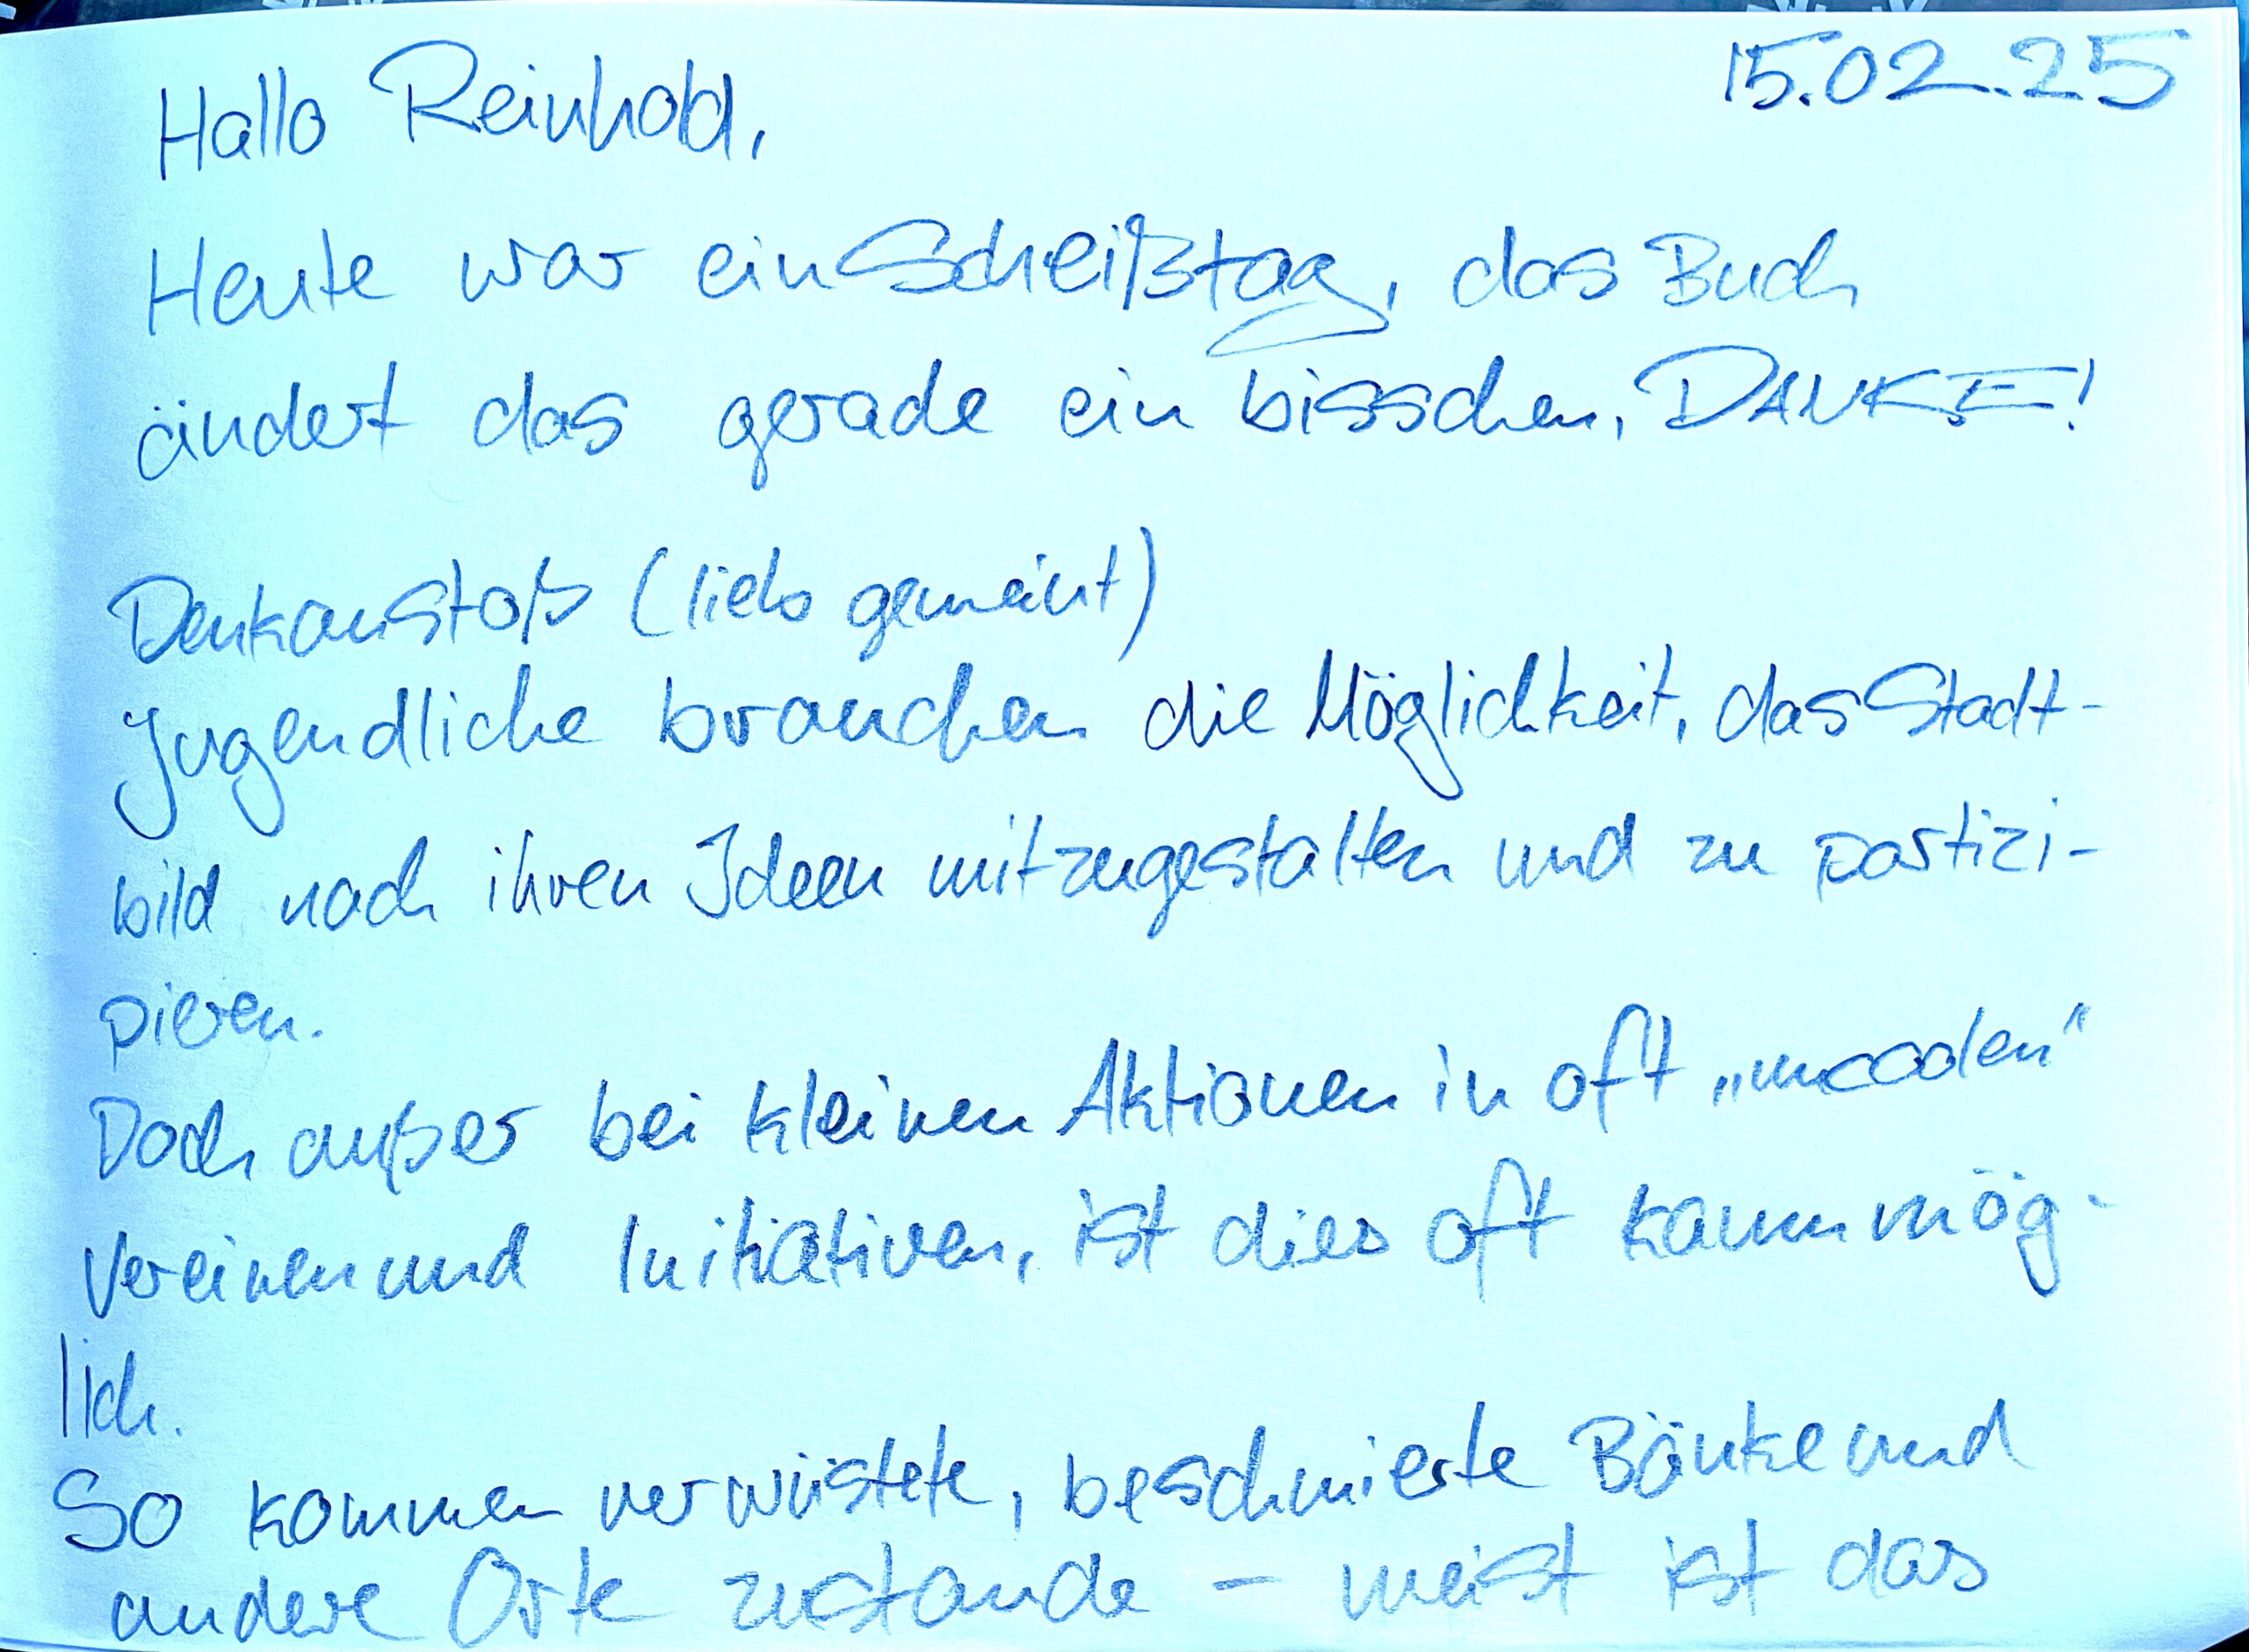 15.02.25
Hallo Reinhold,
Heute war ein Scheißtag, das Buch
ändert das gerade ein bisschen, DANKE!
Denkanstoß (lieb gemeint)
Jugendliche brauchen die Möglichkeit, das Stadt-
bild nach ihren Ideen mitzugestalten und zu partizi-
pieren.
Doch außer bei kleinen Aktionen in oft „uncoolen“
Vereinen und Initiativen, ist dies oft kaum mög-
lich.
So kommen verwüstete, beschmierte Bänke und
andere Orte zustande – meist ist das